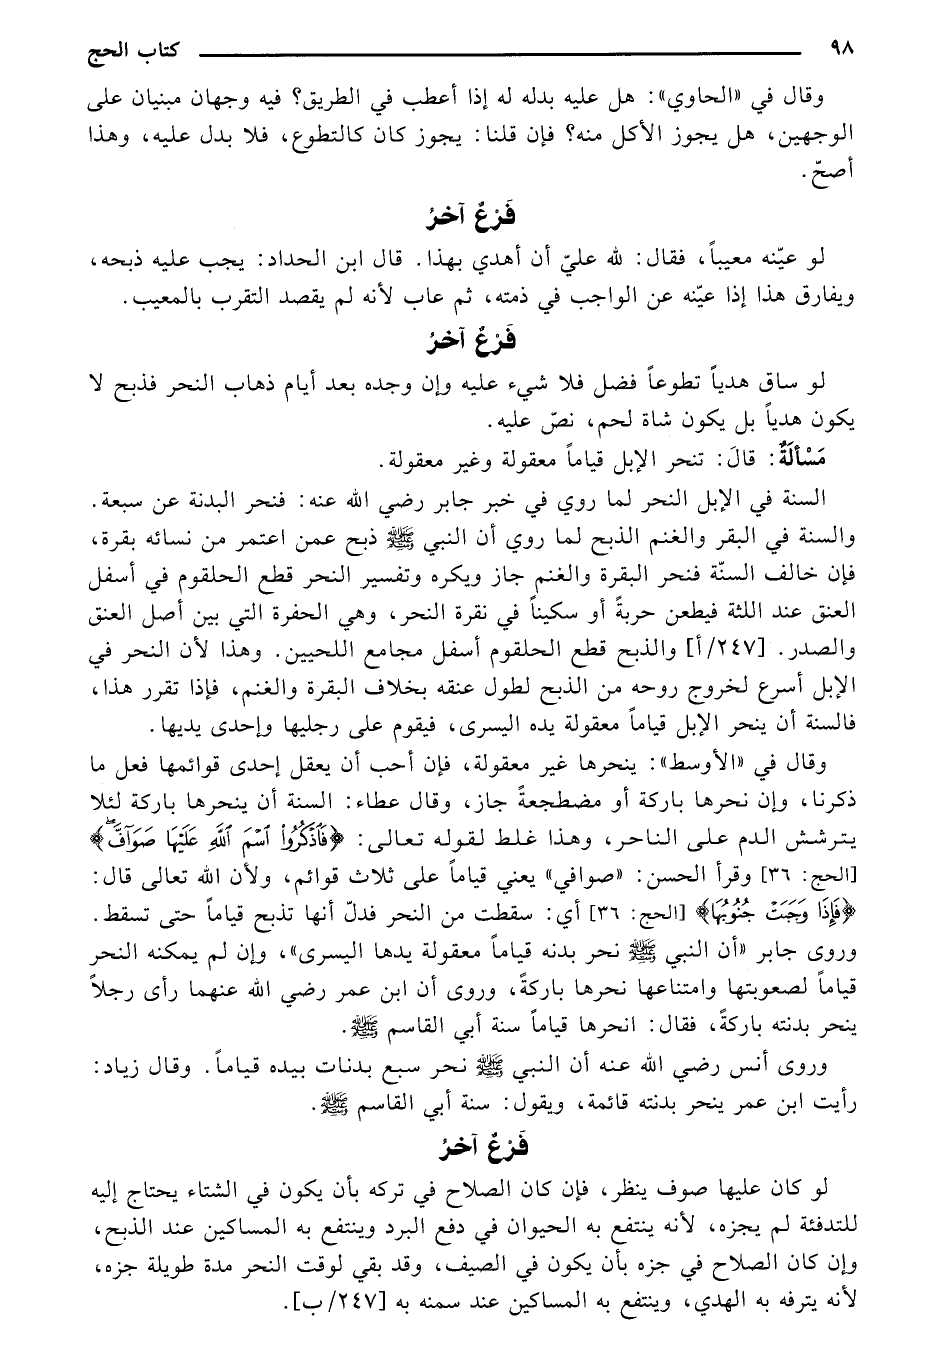 ٩٨ كتاب الحج
وقال في «الحاوي»: هل عليه بدله له إذا أعطب في الطريق؟ فيه وجهان مبنيان على
الوجهين، هل يجوز الأكل منه؟ فإن قلنا: يجوز كان كالتطوع، فلا بدل عليه، وهذا
أصحّ.
فَرْعٌ آخرُ
لو عيّنه معيباً، فقال: لله عليّ أن أهدي بهذا. قال ابن الحداد: يجب عليه ذبحه،
ويفارق هذا إذا عيّنه عن الواجب في ذمته، ثم عاب لأنه لم يقصد التقرب بالمعيب.
فَرْعٌ آخرُ
لو ساق هدياً تطوعاً فضل فلا شيء عليه وإن وجده بعد أيام ذهاب النحر فذبح لا
يكون هدياً بل يكون شاة لحم، نصّ عليه.
مَسْأَلَةٌ: قالَ: تنحر الإبل قياماً معقولة وغير معقولة.
السنة في الإبل النحر لما روي في خبر جابر رضي الله عنه: فنحر البدنة عن سبعة.
والسنة في البقر والغنم الذبح لما روي أن النبي ﷺ ذبح عمن اعتمر من نسائه بقرة،
فإن خالف السنّة فنحر البقرة والغنم جاز ويكره وتفسير النحر قطع الحلقوم في أسفل
العنق عند اللثة فيطعن حربةً أو سكيناً في نقرة النحر، وهي الحفرة التي بين أصل العنق
والصدر. [٢٤٧/أ] والذبح قطع الحلقوم أسفل مجامع اللحيين. وهذا لأن النحر في
الإبل أسرع لخروج روحه من الذبح لطول عنقه بخلاف البقرة والغنم، فإذا تقرر هذا،
فالسنة أن ينحر الإبل قياماً معقولة يده اليسرى، فيقوم على رجليها وإحدى يديها.
وقال في «الأوسط»: ينحرها غير معقولة، فإن أحب أن يعقل إحدى قوائمها فعل ما
ذكرنا، وإن نحرها باركة أو مضطجعةً جاز، وقال عطاء: السنة أن ينحرها باركة لئلا
يترشش الدم على الناحر، وهذا غلط لقوله تعالى: ﴿فَٱذْكُرُوا۟ ٱسْمَ ٱللَّهِ عَلَيْهَا صَوَآفَّۖ﴾
[الحج: ٣٦] وقرأ الحسن: «صوافي» يعني قياماً على ثلاث قوائم، ولأن الله تعالى قال:
﴿فَإِذَا وَجَبَتْ جُنُوبُهَا﴾ [الحج: ٣٦] أي: سقطت من النحر فدلّ أنها تذبح قياماً حتى تسقط.
وروى جابر «أن النبي ﷺ نحر بدنه قياماً معقولة يدها اليسرى»، وإن لم يمكنه النحر
قياماً لصعوبتها وامتناعها نحرها باركةً، وروى أن ابن عمر رضي الله عنهما رأى رجلاً
ينحر بدنته باركةً، فقال: انحرها قياماً سنة أبي القاسم ﷺ.
وروى أنس رضي الله عنه أن النبي ﷺ نحر سبع بدنات بيده قياماً. وقال زياد:
رأيت ابن عمر ينحر بدنته قائمة، ويقول: سنة أبي القاسم ﷺ.
فَرْعٌ آخرُ
لو كان عليها صوف ينظر، فإن كان الصلاح في تركه بأن يكون في الشتاء يحتاج إليه
للتدفئة لم يجزه، لأنه ينتفع به الحيوان في دفع البرد وينتفع به المساكين عند الذبح،
وإن كان الصلاح في جزه بأن يكون في الصيف، وقد بقي لوقت النحر مدة طويلة جزه،
لأنه يترفه به الهدي، وينتفع به المساكين عند سمنه به [٢٤٧/ب].